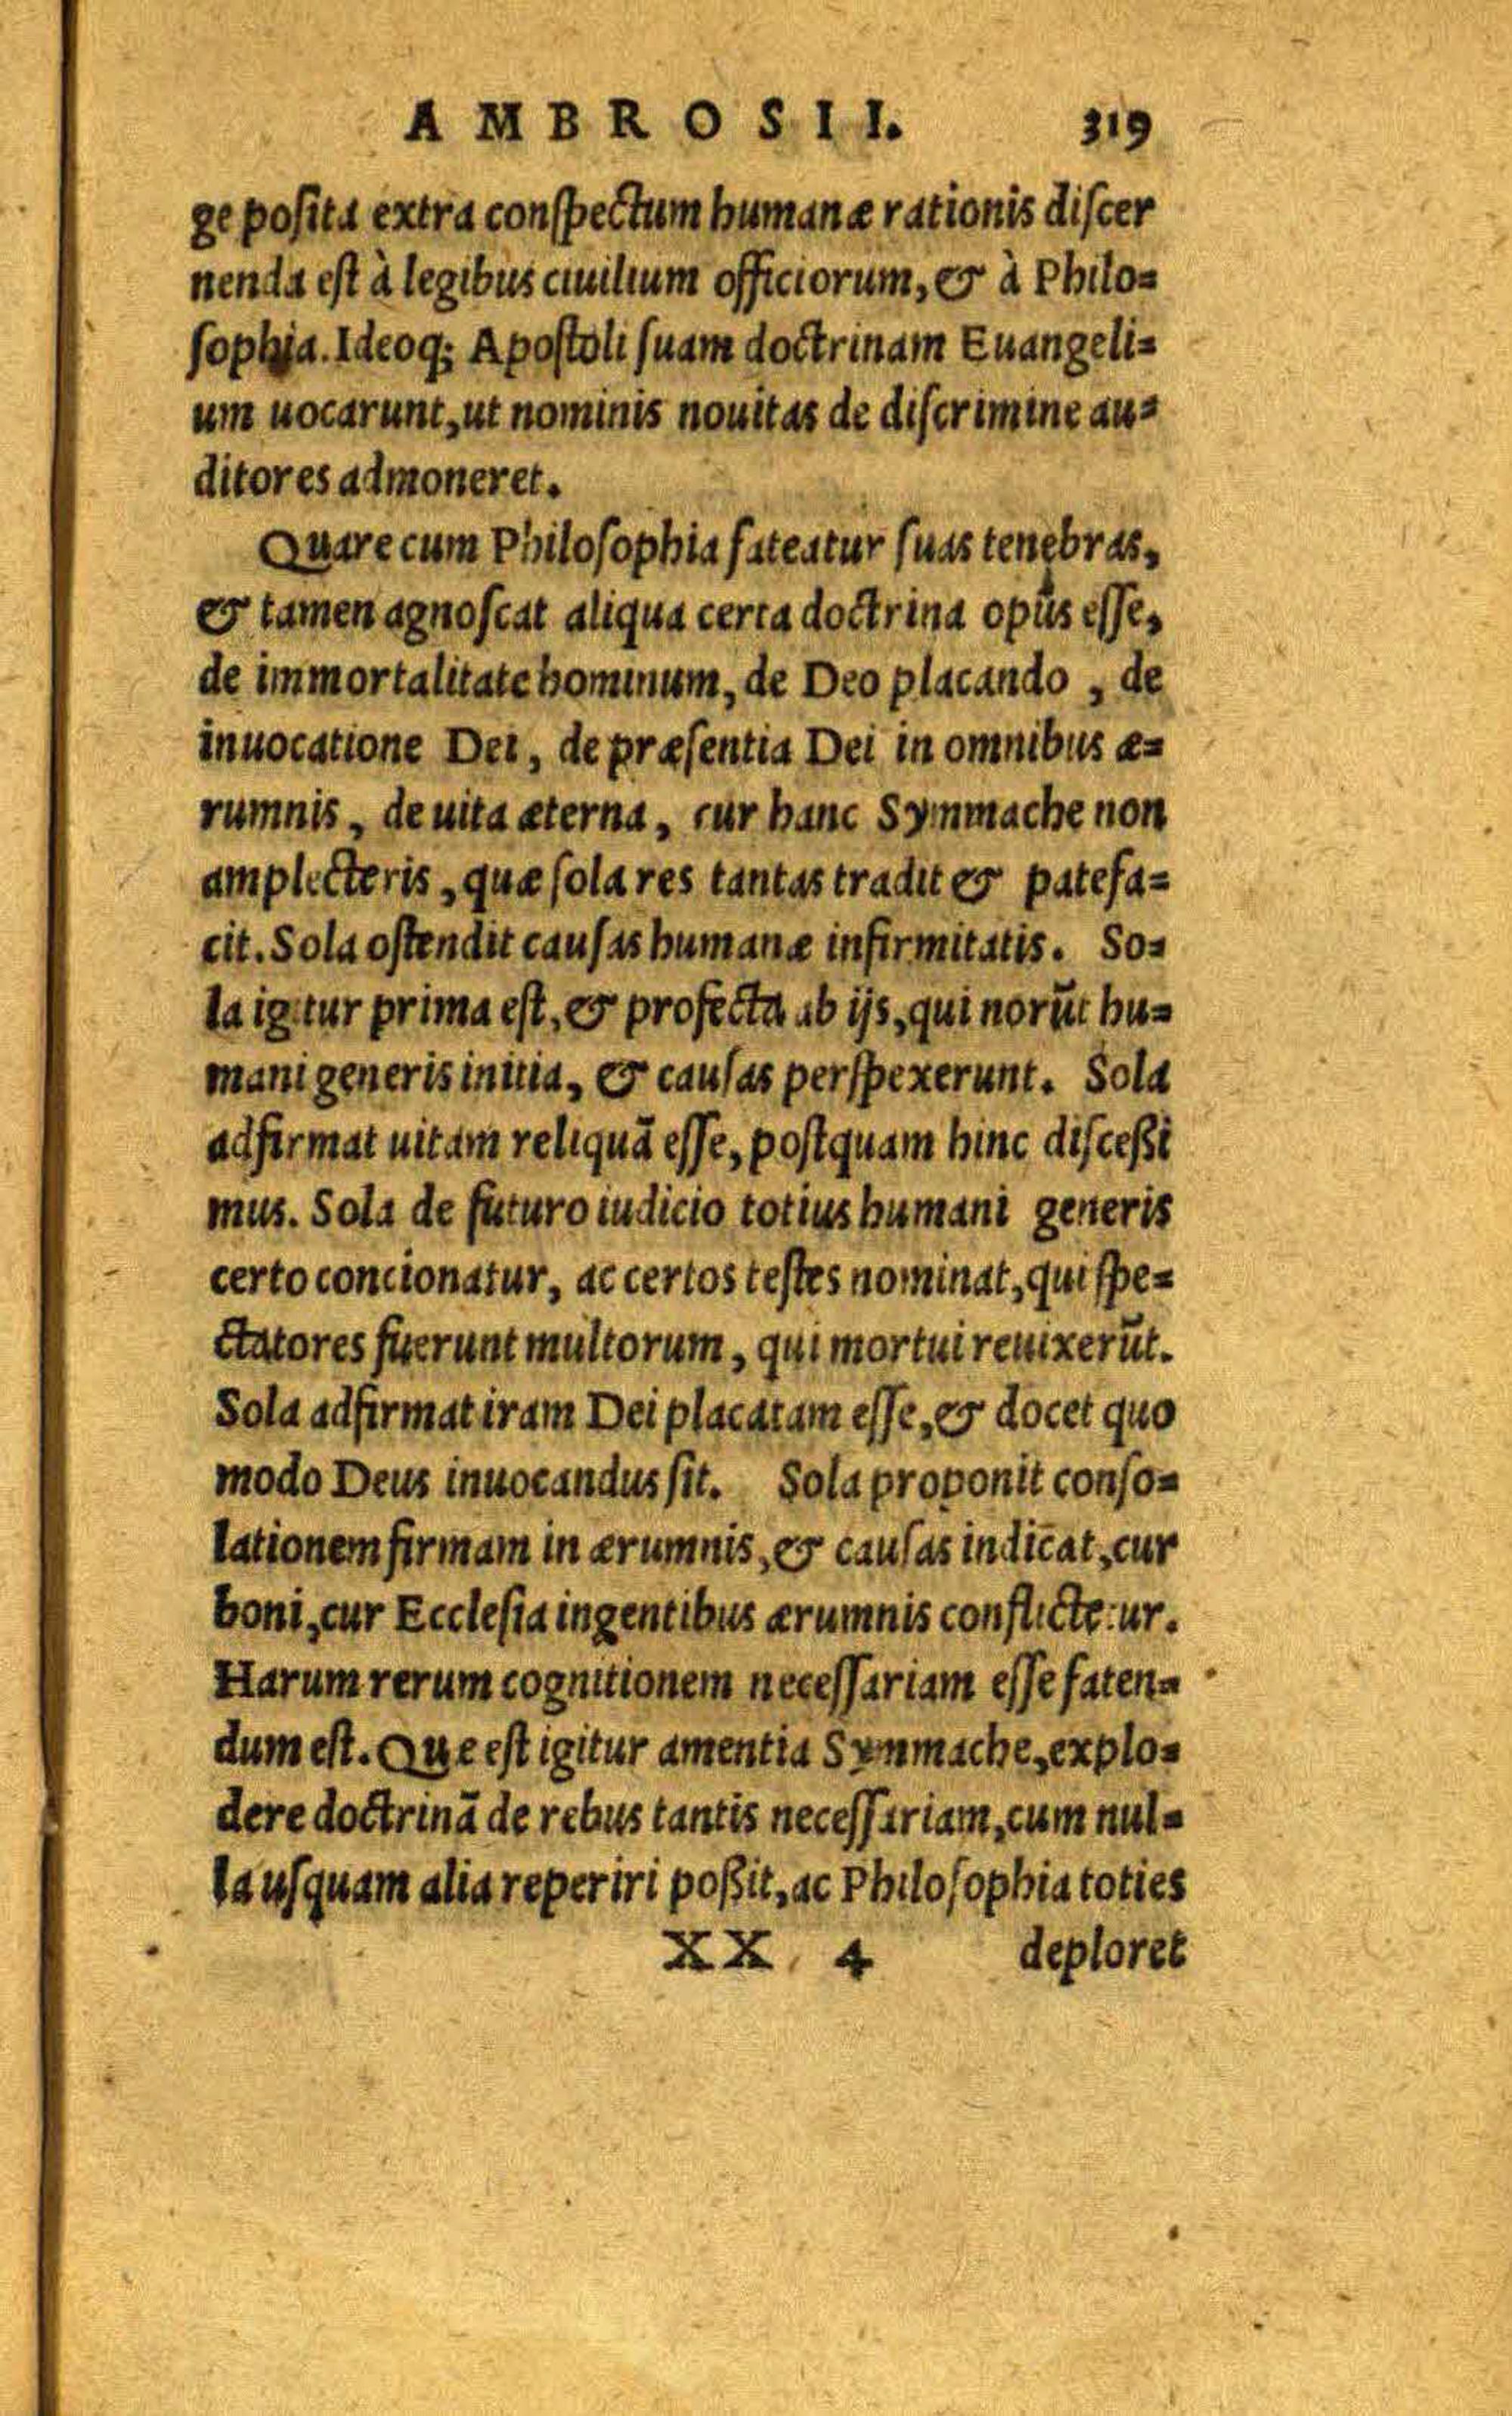 AMBROSII. 319
ge posita extra conspectum humanæ rationis discer
nenda est à legibus ciuilium officiorum, & à Philo=
sophia. Ideoq; Apostoli suam doctrinam Euangeli=
um uocarunt, ut nominis nouitas de discrimine au=
ditores admoneret.
Quare cum Philosophia fateatur suas tenebras,
& tamen agnoscat aliqua certa doctrina opus esse,
de immortalitate hominum, de Deo placando, de
inuocatione Dei, de præsentia Dei in omnibus æ=
rumnis, de uita æterna, cur hanc Symmache non
amplecteris, quæ sola res tantas tradit & patefa=
cit. Sola ostendit causas humanæ infirmitatis. So=
la igitur prima est, & profecta ab ijs, qui norūt hu=
mani generis initia, & causas perspexerunt. Sola
adfirmat uitam reliquā esse, postquam hinc disceßi
mus. Sola de futuro iudicio totius humani generis
certo concionatur, ac certos testes nominat, qui spe=
ctatores fuerunt multorum, qui mortui reuixerūt.
Sola adfirmat iram Dei placatam esse, & docet quo
modo Deus inuocandus sit. Sola proponit conso=
lationem firmam in ærumnis, & causas indicat, cur
boni, cur Ecclesia ingentibus ærumnis conflictetur.
Harum rerum cognitionem necessariam esse faten=
dum est. Que est igitur amentia Symmache, explo=
dere doctrinā de rebus tantis necessariam, cum nul=
la usquam alia reperiri poßit, ac Philosophia toties
XX 4 deploret